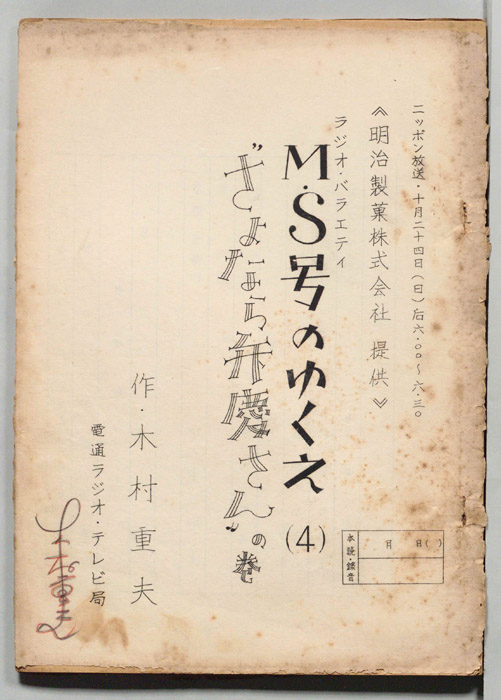 ニッポン放送・十月二十四日(日)后六・〇〇～六・三〇
《明治製菓株式会社 提供》
ラジオ・バラエティ
M・S号のゆくえ(4)
〝さよなら弁慶さん〟の巻
作・木村重夫
電通ラジオ・テレビ局
月 日( )
本読・録音